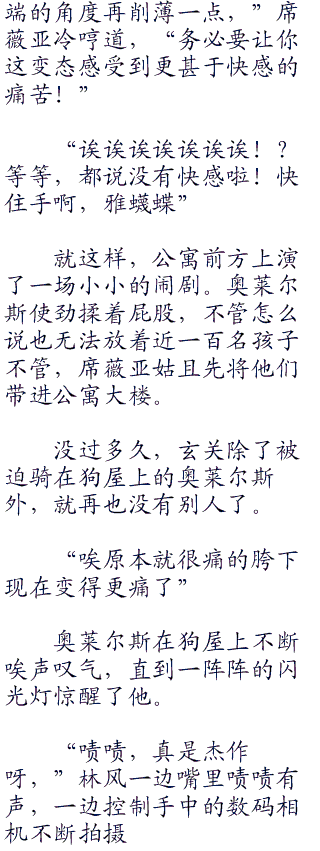 端的角度再削薄一点，”席
薇亚冷哼道，“务必要让你
这变态感受到更甚于快感的
痛苦！”
“诶诶诶诶诶诶诶！？
等等，都说没有快感啦！快
住手啊，雅蠛蝶”
就这样，公寓前方上演
了一场小小的闹剧。奥莱尔
斯使劲揉着屁股，不管怎么
说也无法放着近一百名孩子
不管，席薇亚姑且先将他们
带进公寓大楼。
没过多久，玄关除了被
迫骑在狗屋上的奥莱尔斯
外，就再也没有别人了。
“唉原本就很痛的胯下
现在变得更痛了”
奥莱尔斯在狗屋上不断
唉声叹气，直到一阵阵的闪
光灯惊醒了他。
“啧啧，真是杰作
呀，”林风一边嘴里啧啧有
声，一边控制手中的数码相
机不断拍摄